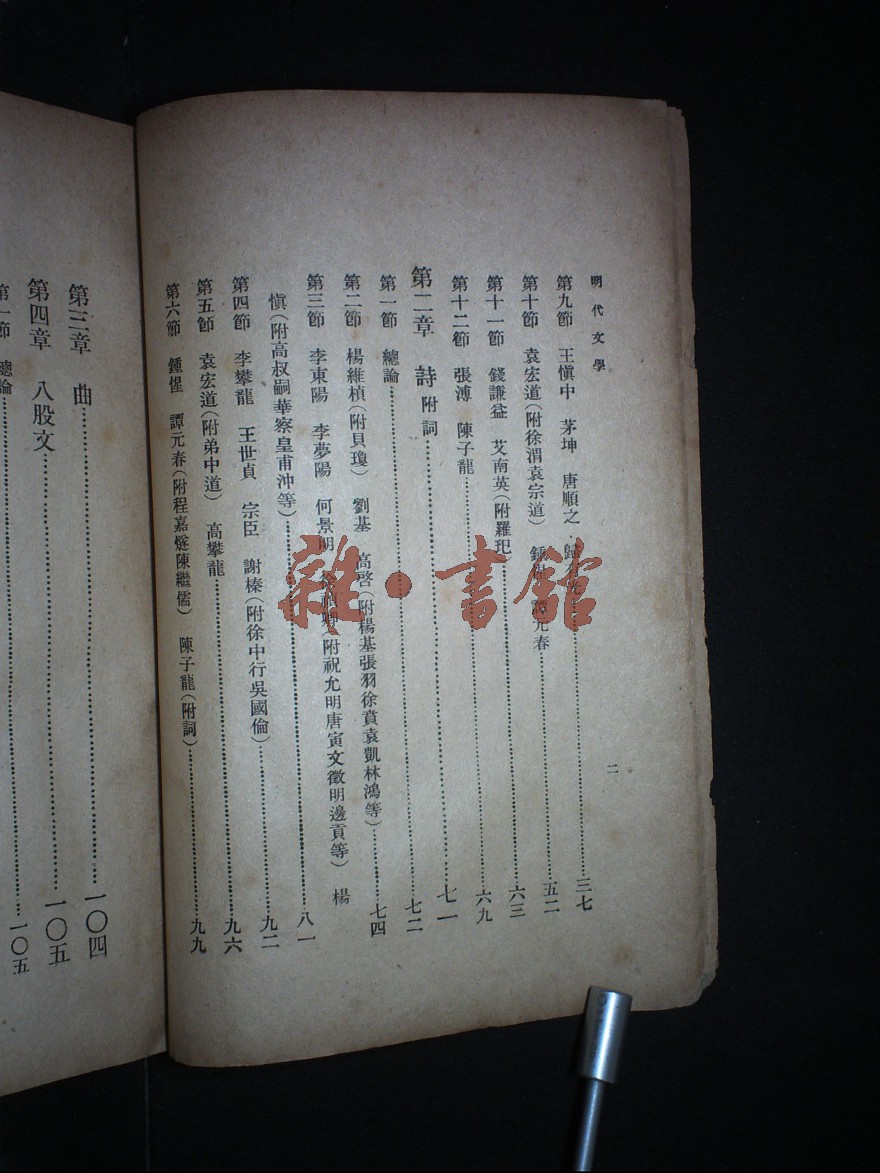 明代文學
二
第九節　王慎中　茅坤　唐順之　歸　光………三七
第十節　袁宏道(附徐渭袁宗道)　鍾惺　譚元春………五二
第十一節　錢謙益　艾南英(附羅玘)………六三
第十二節　張溥　陳子龍………六九
第二章　詩附詞………七一
第一節　總論………七二
第二節　楊維楨(附貝瓊)　劉基　高啓(附楊基張羽徐賁袁凱林鴻等)………七四
第三節　李東陽　李夢陽　何景明　徐禎卿(附祝允明唐寅文徵明邊貢等)　楊
愼(附高叔嗣華察皇甫沖等)………八一
第四節　李攀龍　王世貞　宗臣　謝榛(附徐中行吳國倫)………九二
第五節　袁宏道(附弟中道)　高攀龍………九六
第六節　鍾惺　譚元春(附程嘉燧陳繼儒)　陳子龍(附詞)………九九
第三章　曲………一〇四
第四章　八股文………一〇五
第一節　總論………一〇五
雜·書館